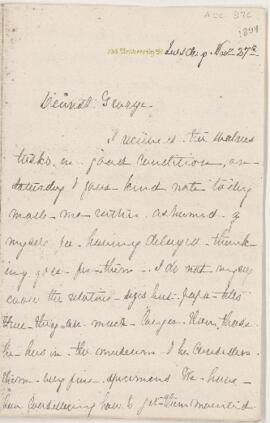 ACC 376
1894
Tuesday. Nov 27th
Dearest George.
I received the walrus
tusks in good condition on
Saturday & your kind note to day
made me rather ashamed of
myself for having delayed thank-
ing you for them. I do not myself
know the relative sizes but papa
these are much larger than those
he has in the museum & he considers
them very fine specimens We have
been considering how to get them mounted